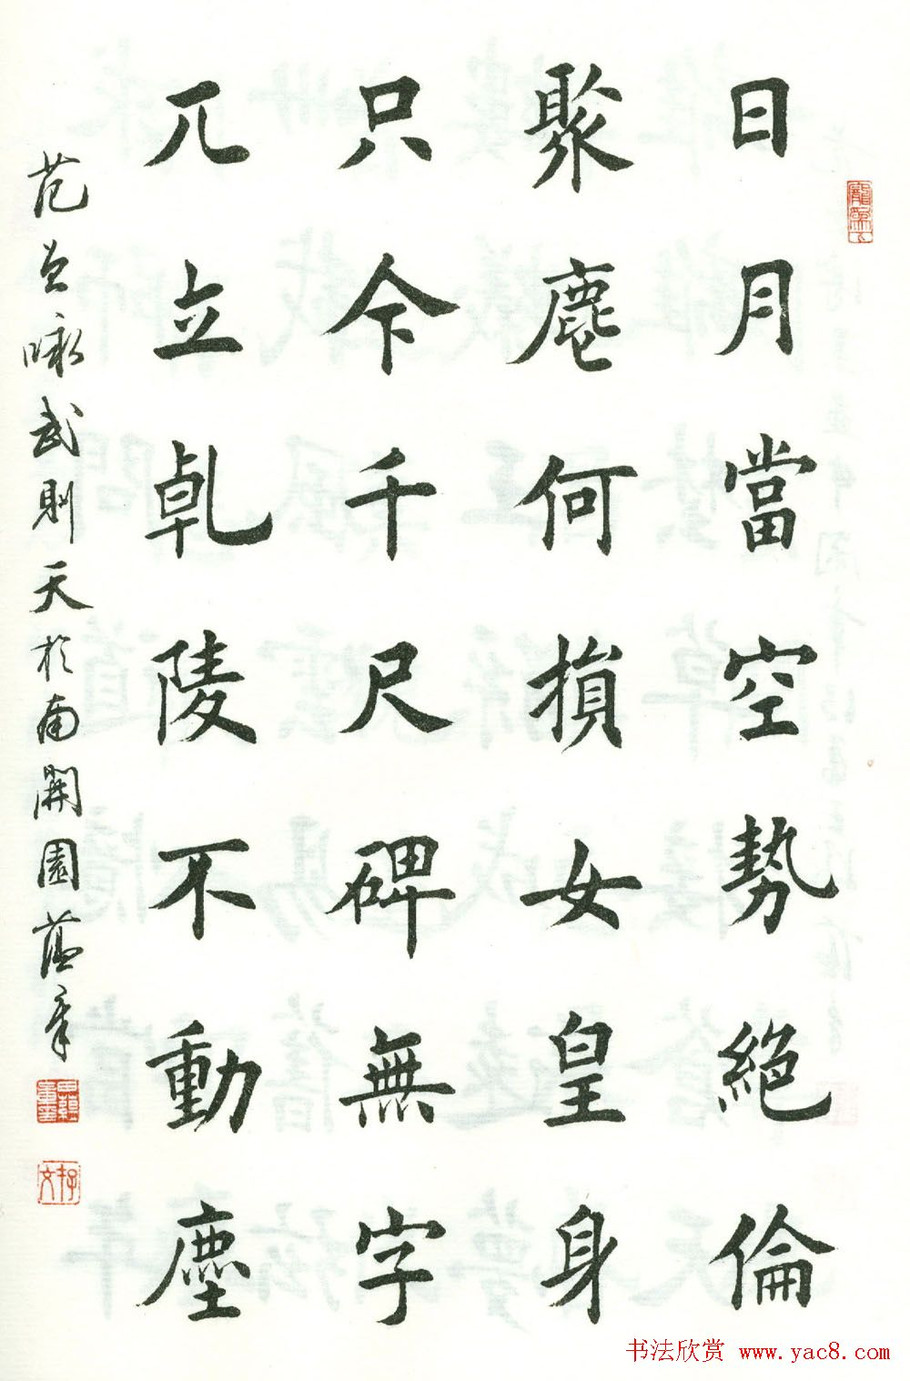 日月當空勢絶倫
聚麀何損女皇身
只今千尺碑無字
兀立乹陵不動塵
范曾咏武則天於南開園蘊章
书法欣赏 www.yac8.com